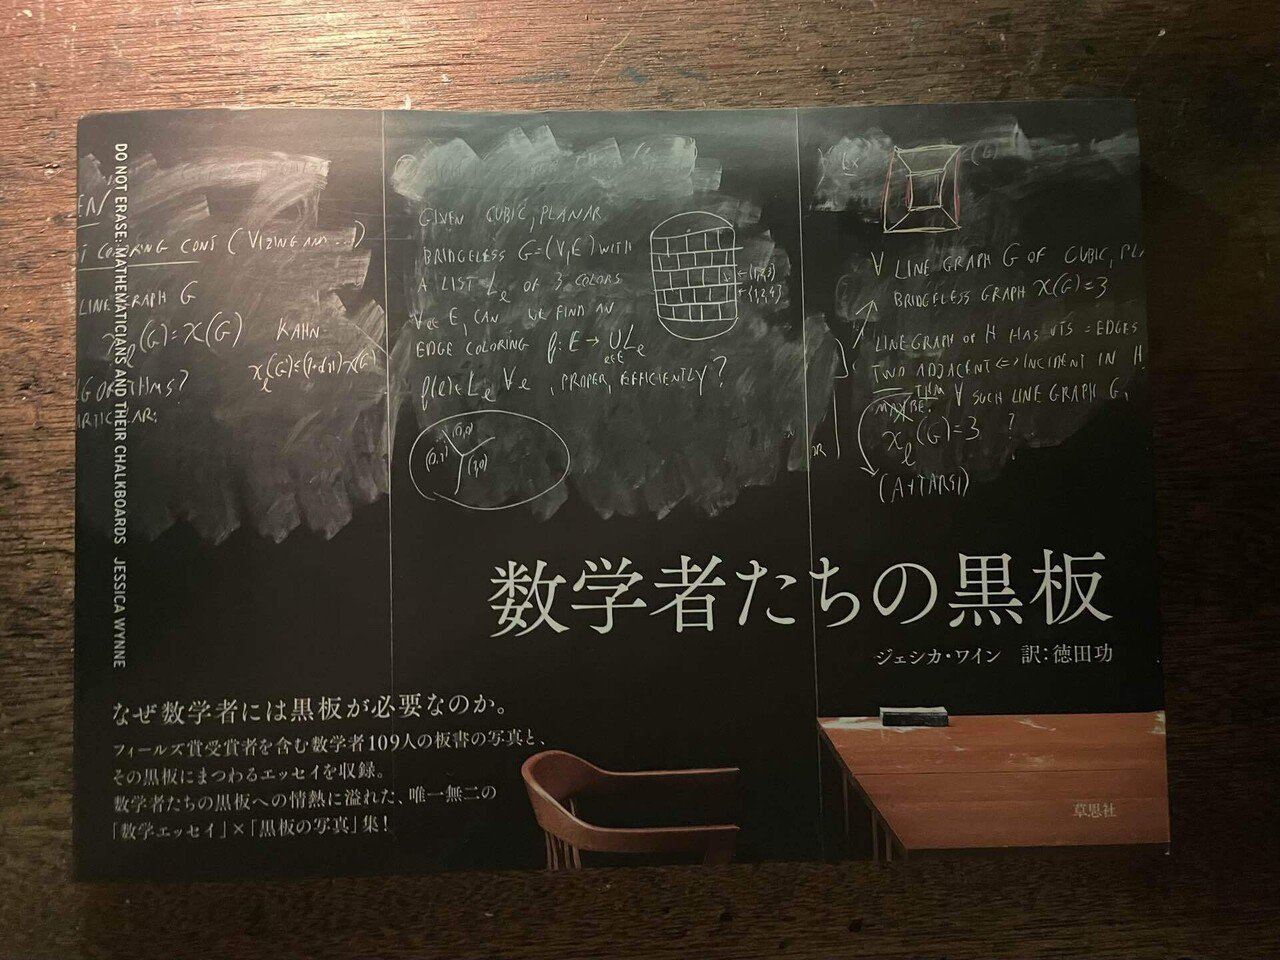 DO NOT ERASE: MATHEMATICIANS AND THEIR CHALKBOARDS JESSICA WYNNE
EN
T COLORING CONJ (VIZING AND ...)
LINE GRAPH G
χℓ(G)=χ(G) KAHN
GORITHMS?
RTICULAR:
GIVEN CUBIC, PLANAR
BRIDGELESS G=(V,E) WITH
A LIST Lₑ OF 3 COLORS
∀e∈E, CAN WE FIND AN
EDGE COLORING f: E → ∪Lₑ
e∈E
f(e)∈Lₑ ∀e, PROPER, EFFICIENTLY?
←{1,2,3}
←{1,2,4}
(0,0)
(0,1)
(1,0)
Ex
∀ LINE GRAPH G OF CUBIC, PL
BRIDGELESS GRAPH χ(G)=3
LINE GRAPH OF H HAS VTS = EDGES
TWO ADJACENT ⇔ INCIDENT IN H
THM
MAYBE: ∀ SUCH LINE GRAPH G,
χℓ(G)=3 ?
(A+TARSI)
数学者たちの黒板
ジェシカ・ワイン 訳：徳田功
なぜ数学者には黒板が必要なのか。
フィールズ賞受賞者を含む数学者109人の板書の写真と、
その黒板にまつわるエッセイを収録。
数学者たちの黒板への情熱に溢れた、唯一無二の
「数学エッセイ」×「黒板の写真」集！
草思社